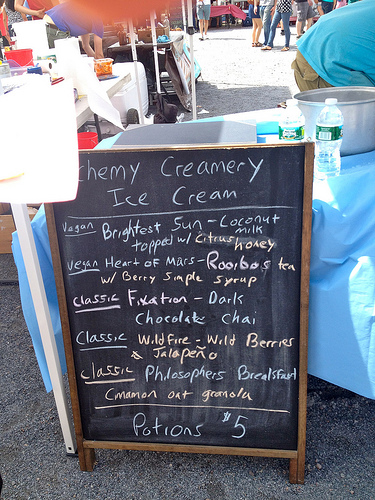 chemy Creamery
Ice Cream
Vegan Brightest Sun - Coconut milk
topped w/ Citrus honey
Vegan Heart of Mars - Rooibos tea
w/ Berry Simple Syrup
Classic Fixation - Dark
Chocolate Chai
Classic Wildfire - Wild Berries
& Jalapeño
Classic Philosophers Breakfast
Cinnamon oat granola
Potions $5